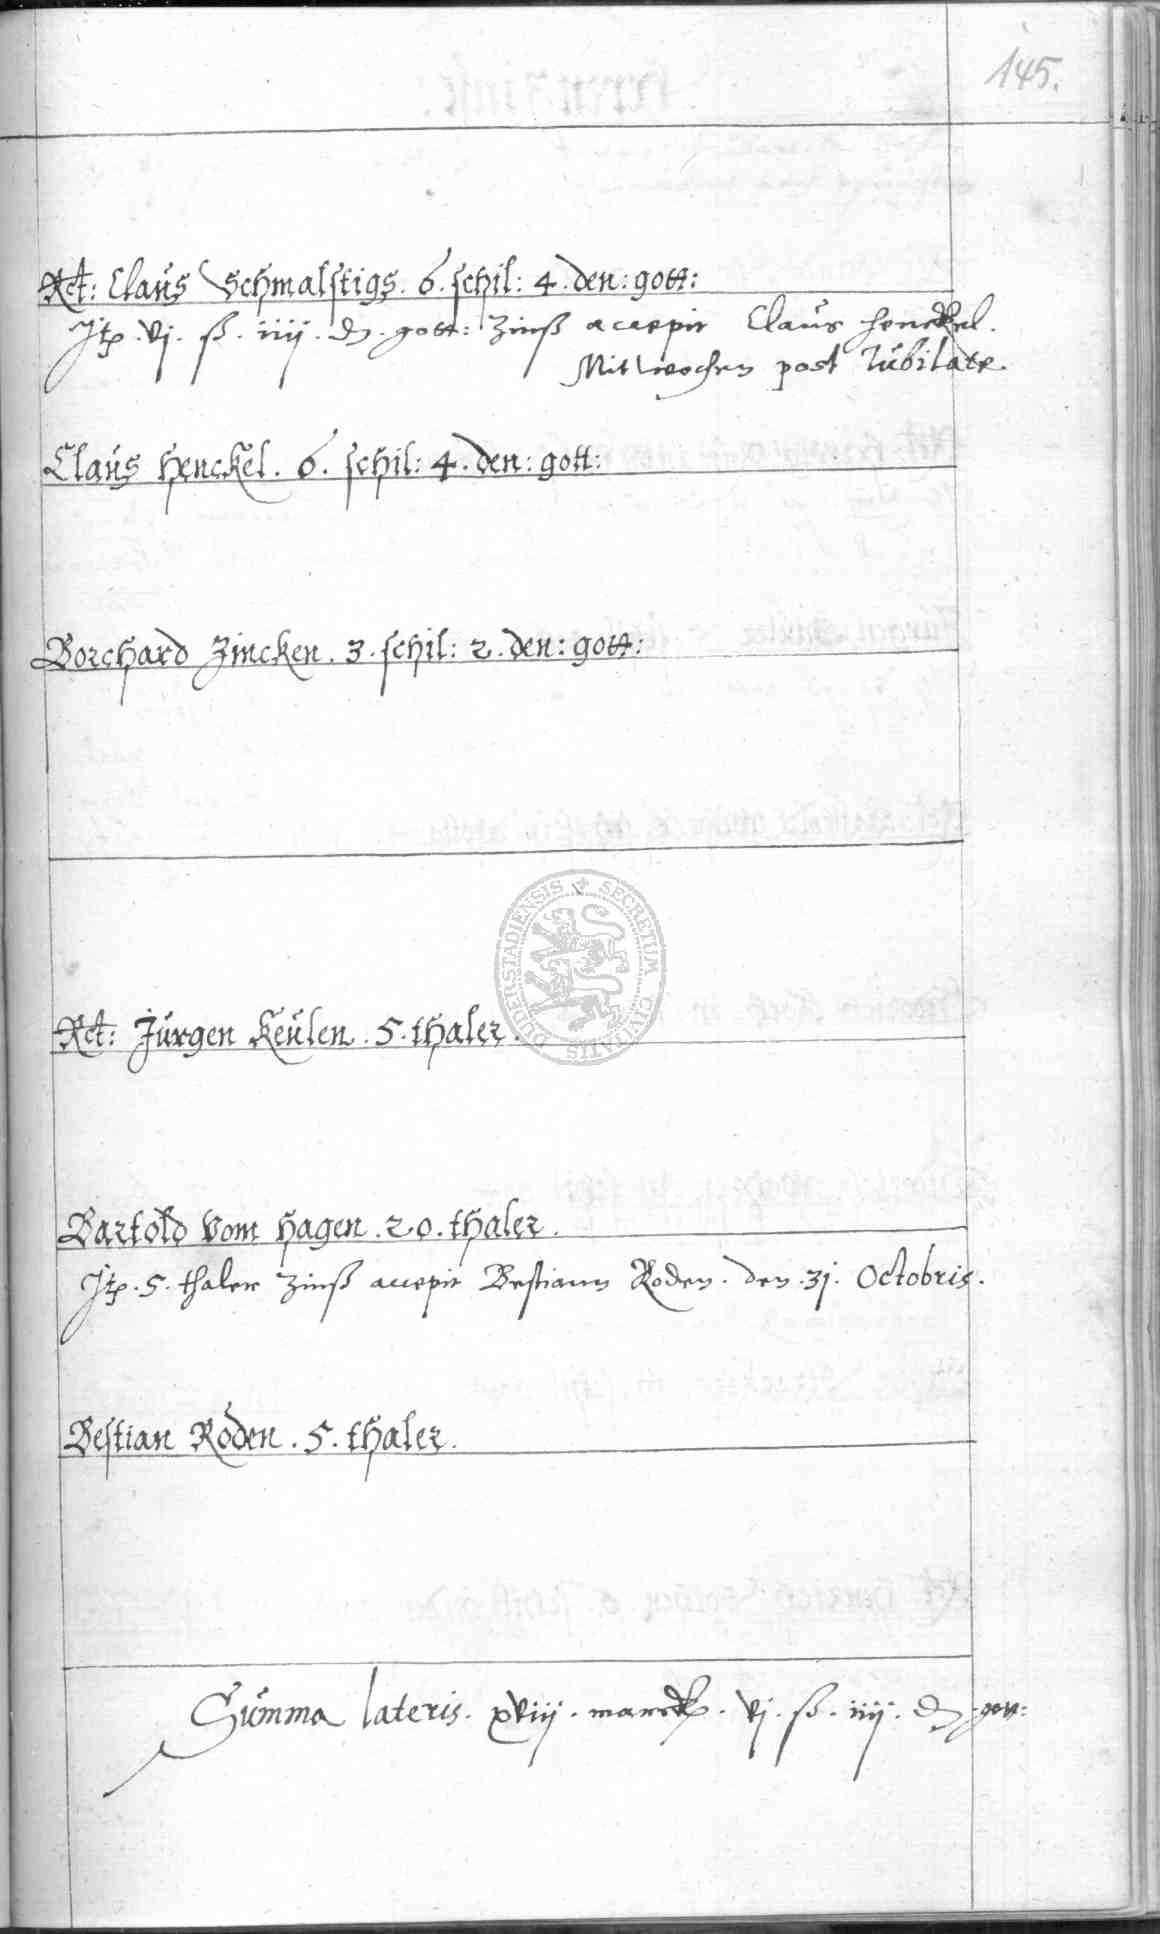 145.
Rct: Claus Schmalstigs. 6. schil: 4. den: gott:
Itp. vj. ß. iiij. d. gott: Zinß accepit Claus Henckel.
Mitwochen post Jubilate.
Claus Henckel. 6. schil: 4. den: gott:
Borchard Zincken. 3. schil: 2. den: gott:
SECRETUM CIVITATIS DUDERSTADIENSIS
Rct: Jürgen Keulen. 5. thaler.
Bartold vom Hagen. 20. thaler.
Itp. 5. thaler Zinß accepit Bestiann Roden. den. 31. Octobris.
Bestian Roden. 5. thaler.
Summa lateris. xviij. marck. vj. ß. iiij. d. gott: